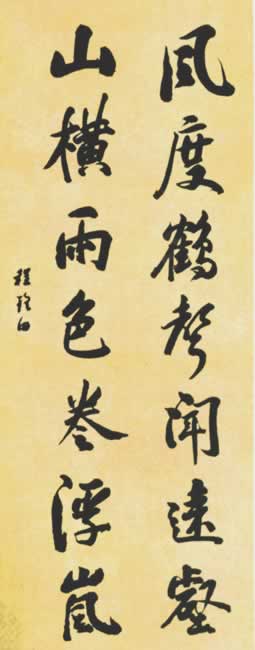 風度鶴聲聞遠壑
山橫雨色卷浮嵐
程瑤田